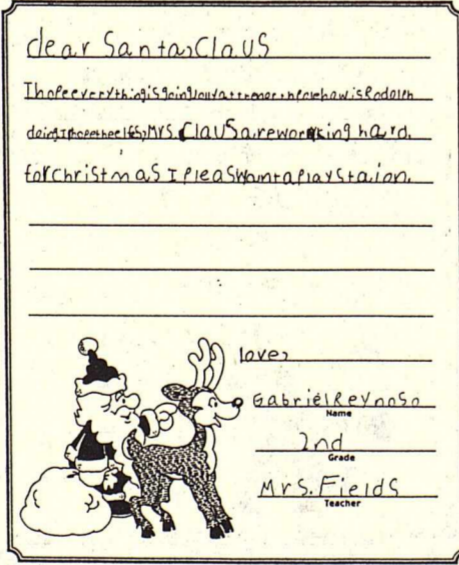 dear Santa,Claus
I hope everything is going jolly at the nor thpole how is Rodolph
doing I hope the elfs, Mrs. Claus are working hard.
for Christmas I pleas want a playstaion.
love,
Gabriel Reynoso
Name
2nd
Grade
Mrs. Fields
Teacher